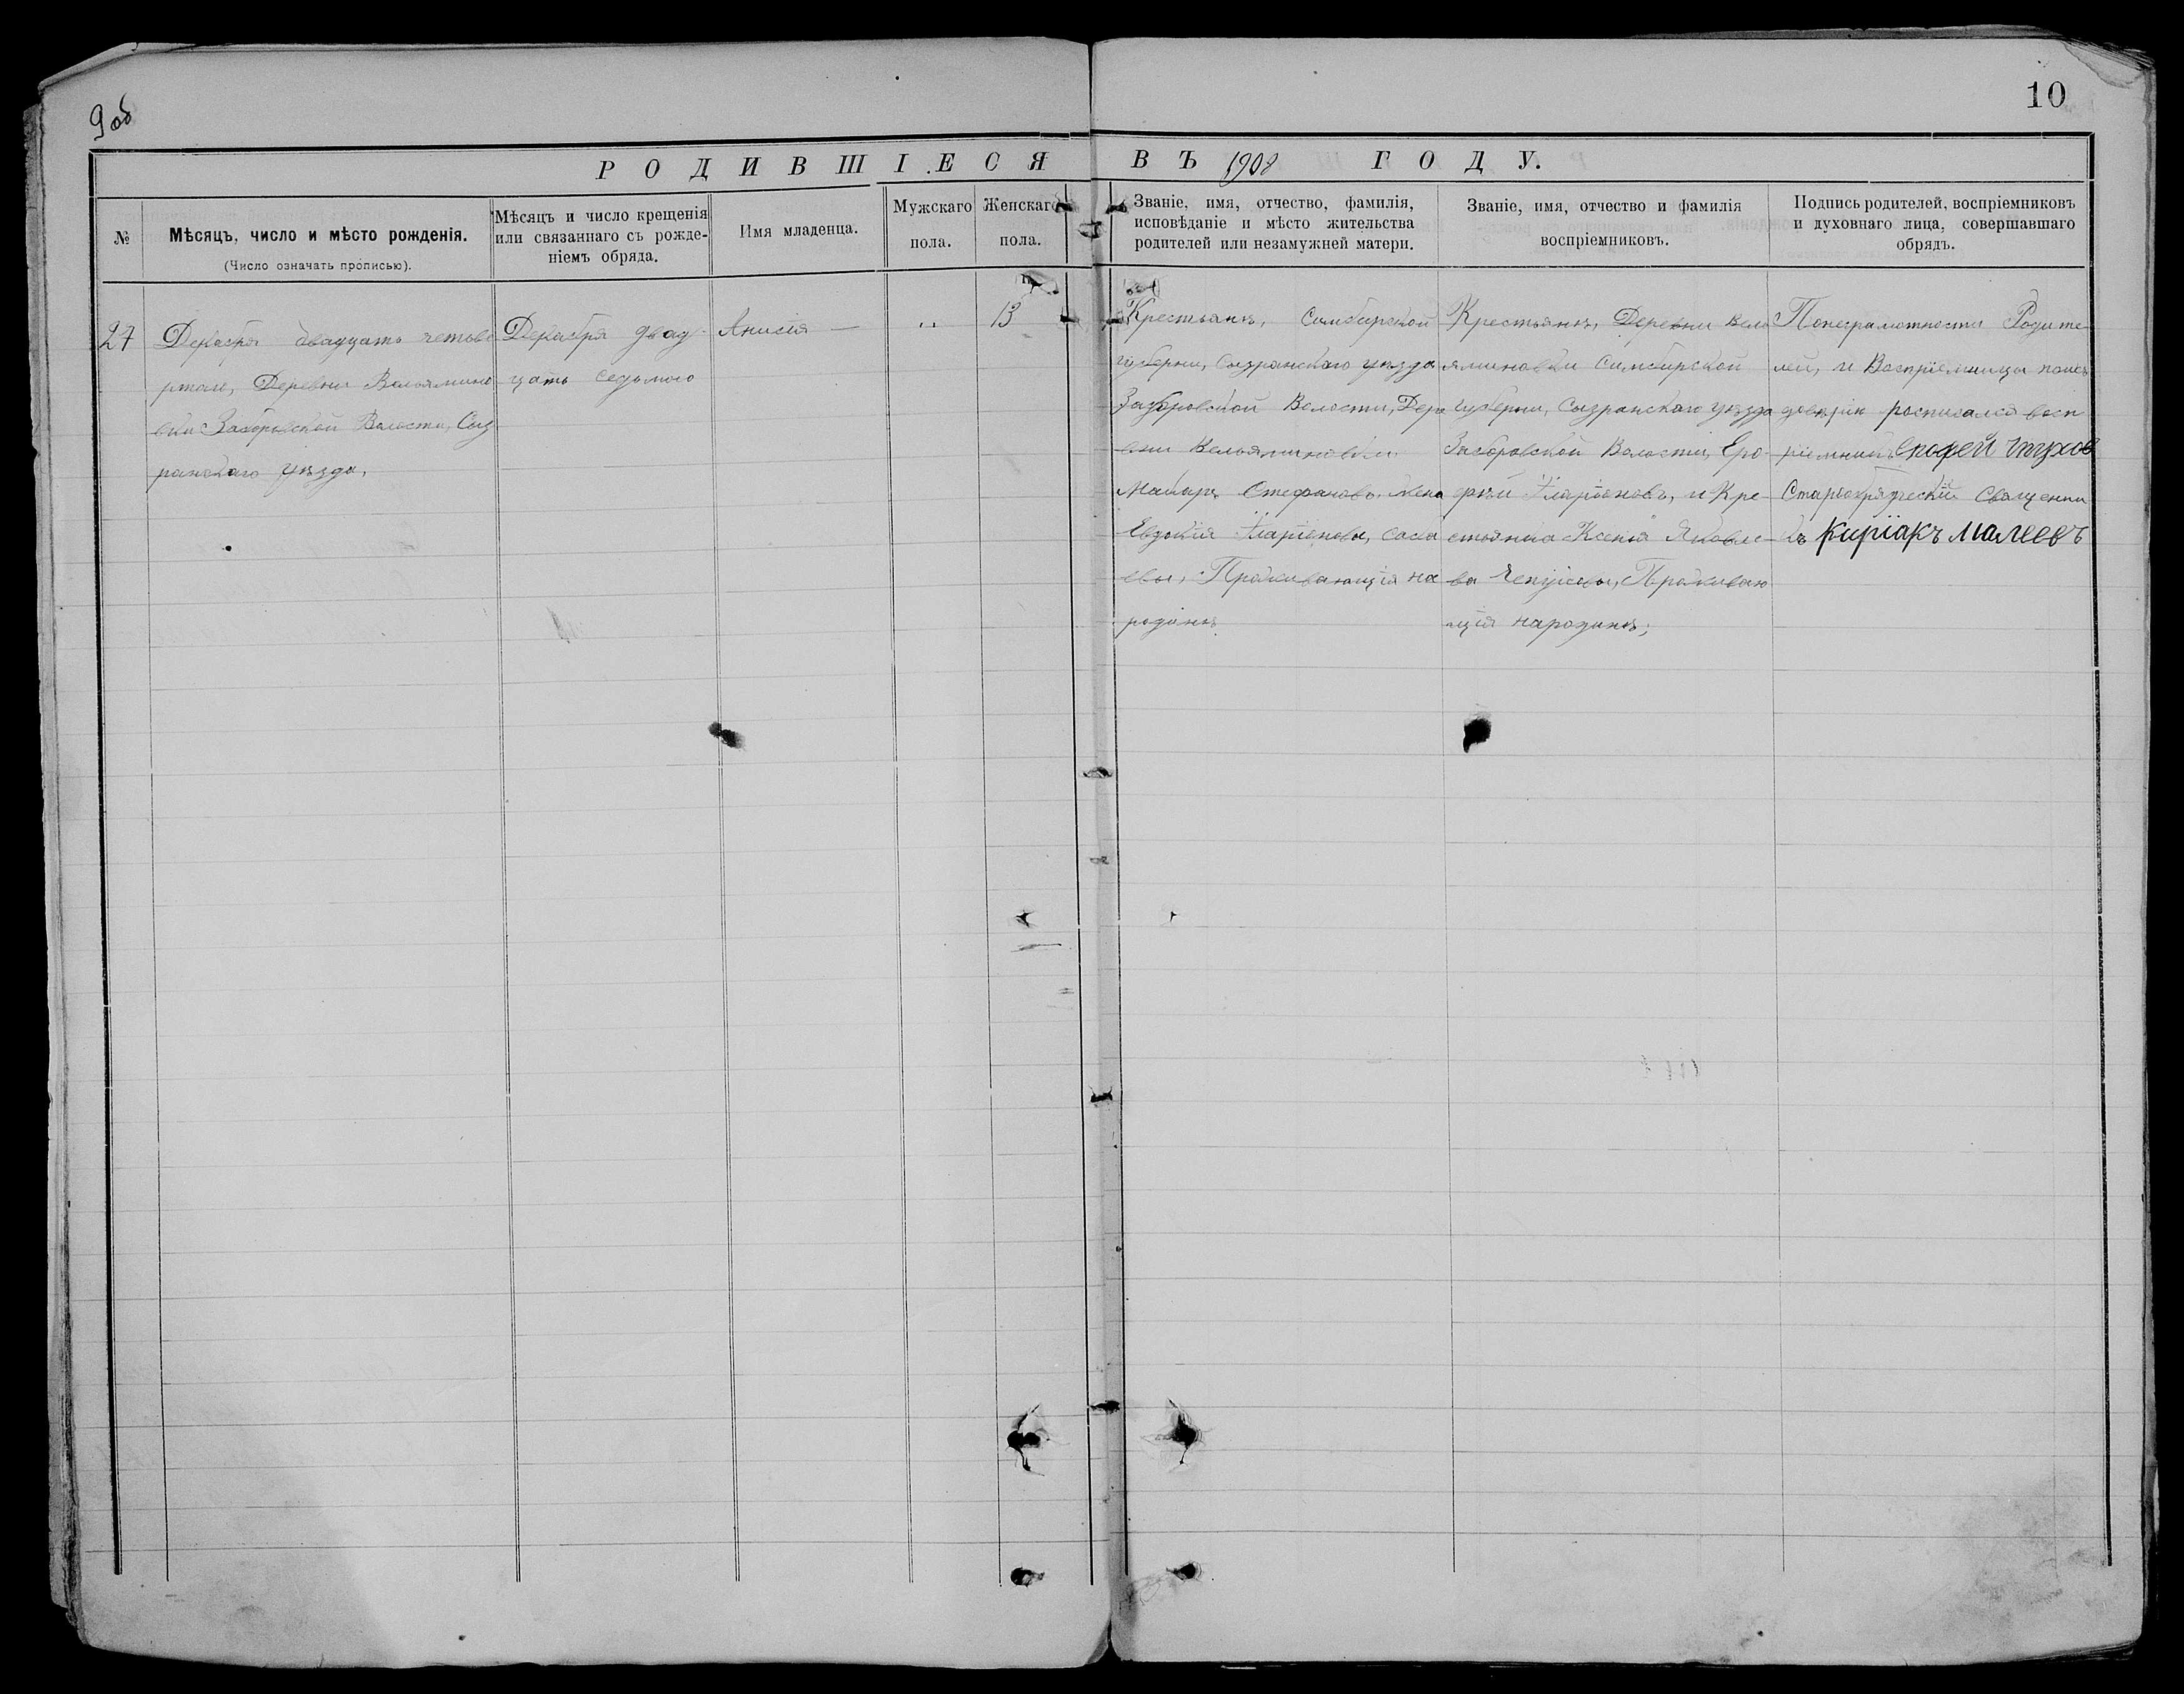 9об
10
РОДИВШІЕСЯ ВЪ 1908 ГОДУ.
№
Мѣсяцъ, число и мѣсто рожденія.
(Число означать прописью).
Мѣсяцъ и число крещенія
или связаннаго съ рожде-
ніемъ обряда.
Имя младенца.
Мужскаго
пола.
Женскаго
пола.
Званіе, имя, отчество, фамилія,
исповѣданіе и мѣсто жительства
родителей или незамужней матери.
Званіе, имя, отчество и фамилія
воспріемниковъ.
Подпись родителей, воспріемниковъ
и духовнаго лица, совершавшаго
обрядъ.
27
Декабря двадцать четве
ртаго, Деревни Вельямино
вки Заборовской Волости, Сыз
ранскаго уѣзда.
Декабря двад-
цать седьмого
Анисія —
13
Крестьянъ, Симбирской
губерни, Сызранскаго уѣзда
Заборовской Волости, Дере
вни Вельяминовки
Стефановъ, жена
Евдокія Иларіонова,
Проживающія на
родинѣ
Крестьянъ, Деревни Вель
яминовки Симбирской
губерни, Сызранскаго уѣзда
Заборовской Волости, Еро-
фѣй Иларіоновъ, и Кре-
стьянка Ксенія Яковле-
ва Проживаю
щія народинѣ;
Понеграмотности Родите-
лей, и Воспріемницы поихъ
довѣрію росписался восп
ріемникъ Ерофей
Старообрядческій Священни
къ Киріакъ Малеевъ